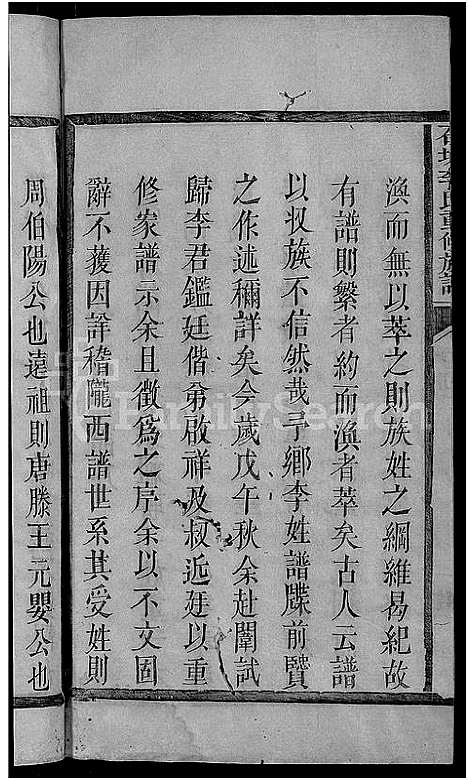 李氏重修族譜
渙而無以萃之則族姓之綱維曷紀故
有譜則繫者約而渙者萃矣古人云譜
以収族不信然哉予鄉李姓譜牒前賢
之作述稱詳矣今歲戊午秋余赴闈試
歸李君鑑廷偕弟啟祥及叔近廷以重
修家譜示余且徵為之序余以不文固
辭不獲因詳稽隴西譜世系其受姓則
周伯陽公也遠祖則唐滕王元嬰公也
FamilySearch